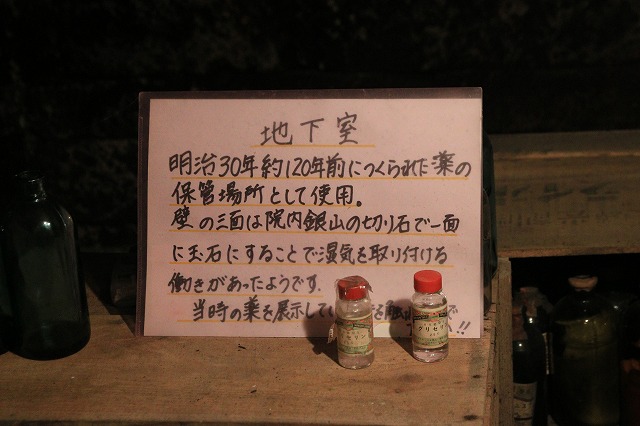 地下室
明治30年約120年前につくられた薬の
保管場所として使用。
壁の三面は院内銀山の切り石で一面
に玉石にすることで湿気を取り付ける
働きがあったようです.
当時の薬を展示してい
で
!!
グリセリン